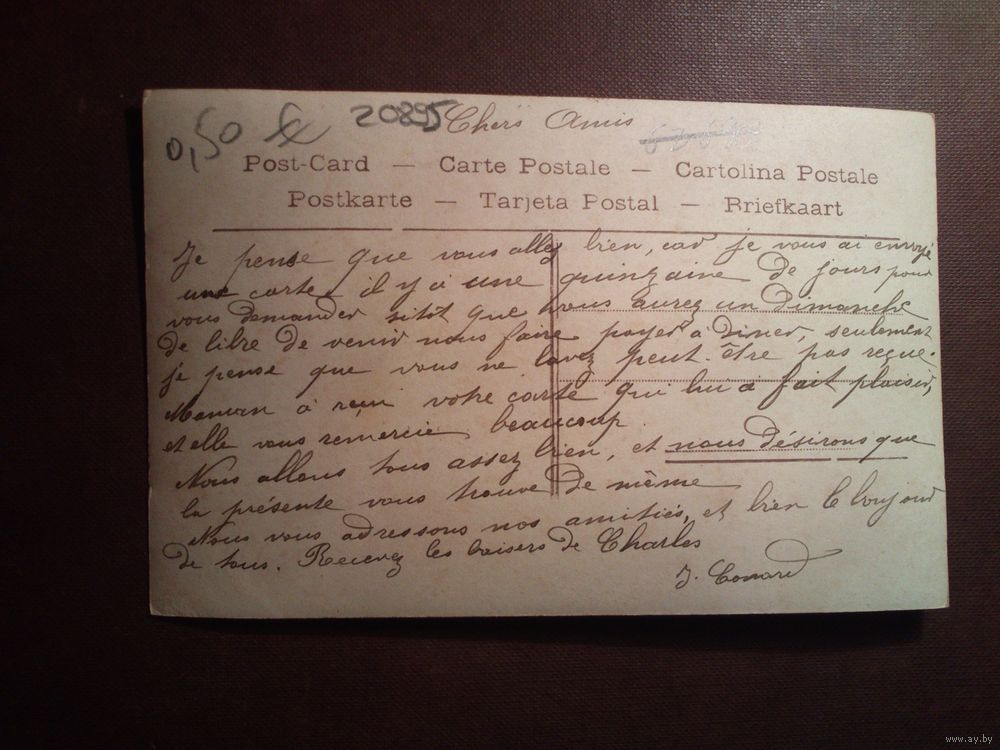 0,50
20895 Chers Amis
Post-Card — Carte Postale — Cartolina Postale
Postkarte — Tarjeta Postal — Briefkaart
Je pense que vous allez bien, car je vous ai envoyé
une carte il y a une quinzaine de jours pour
vous demander sitôt que vous aurez un Dimanche
de libre de venir nous faire payer à Diner, seulement
je pense que vous ne lavez peut-être pas reçue.
Maman à reçu votre carte qui lui a fait plaisir,
et elle vous remercie beaucoup.
Nous allons tous assez bien, et nous désirons que
la présente vous trouve de même
Nous vous adressons nos amitiés, et bien le bonjour
de tous. Recevez les baisers de Charles
J.
www.ay.by